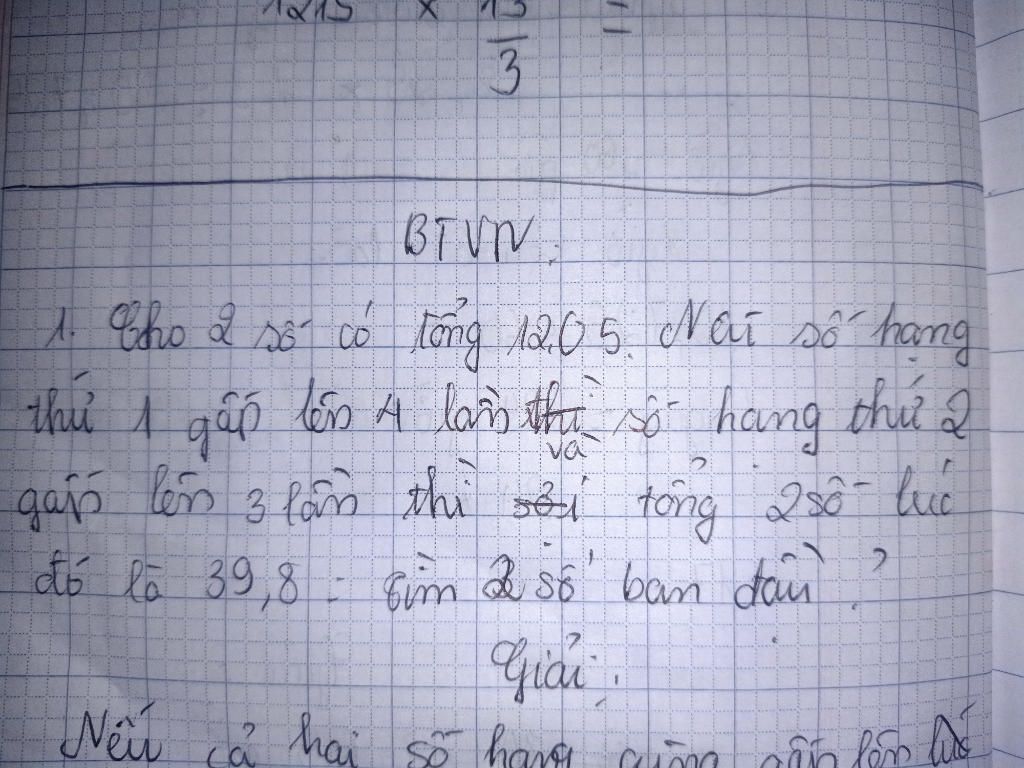 1215 × 13 =
3
BTVN:
1. Cho 2 số có tổng 12,05. Nếu số hạng
thứ 1 gấp lên 4 lần và số hạng thứ 2
gấp lên 3 lần thì tổng 2 số lúc
đó là 39,8. Tìm 2 số ban đầu?
Giải:
Nếu cả hai số hạng cùng gấp lên